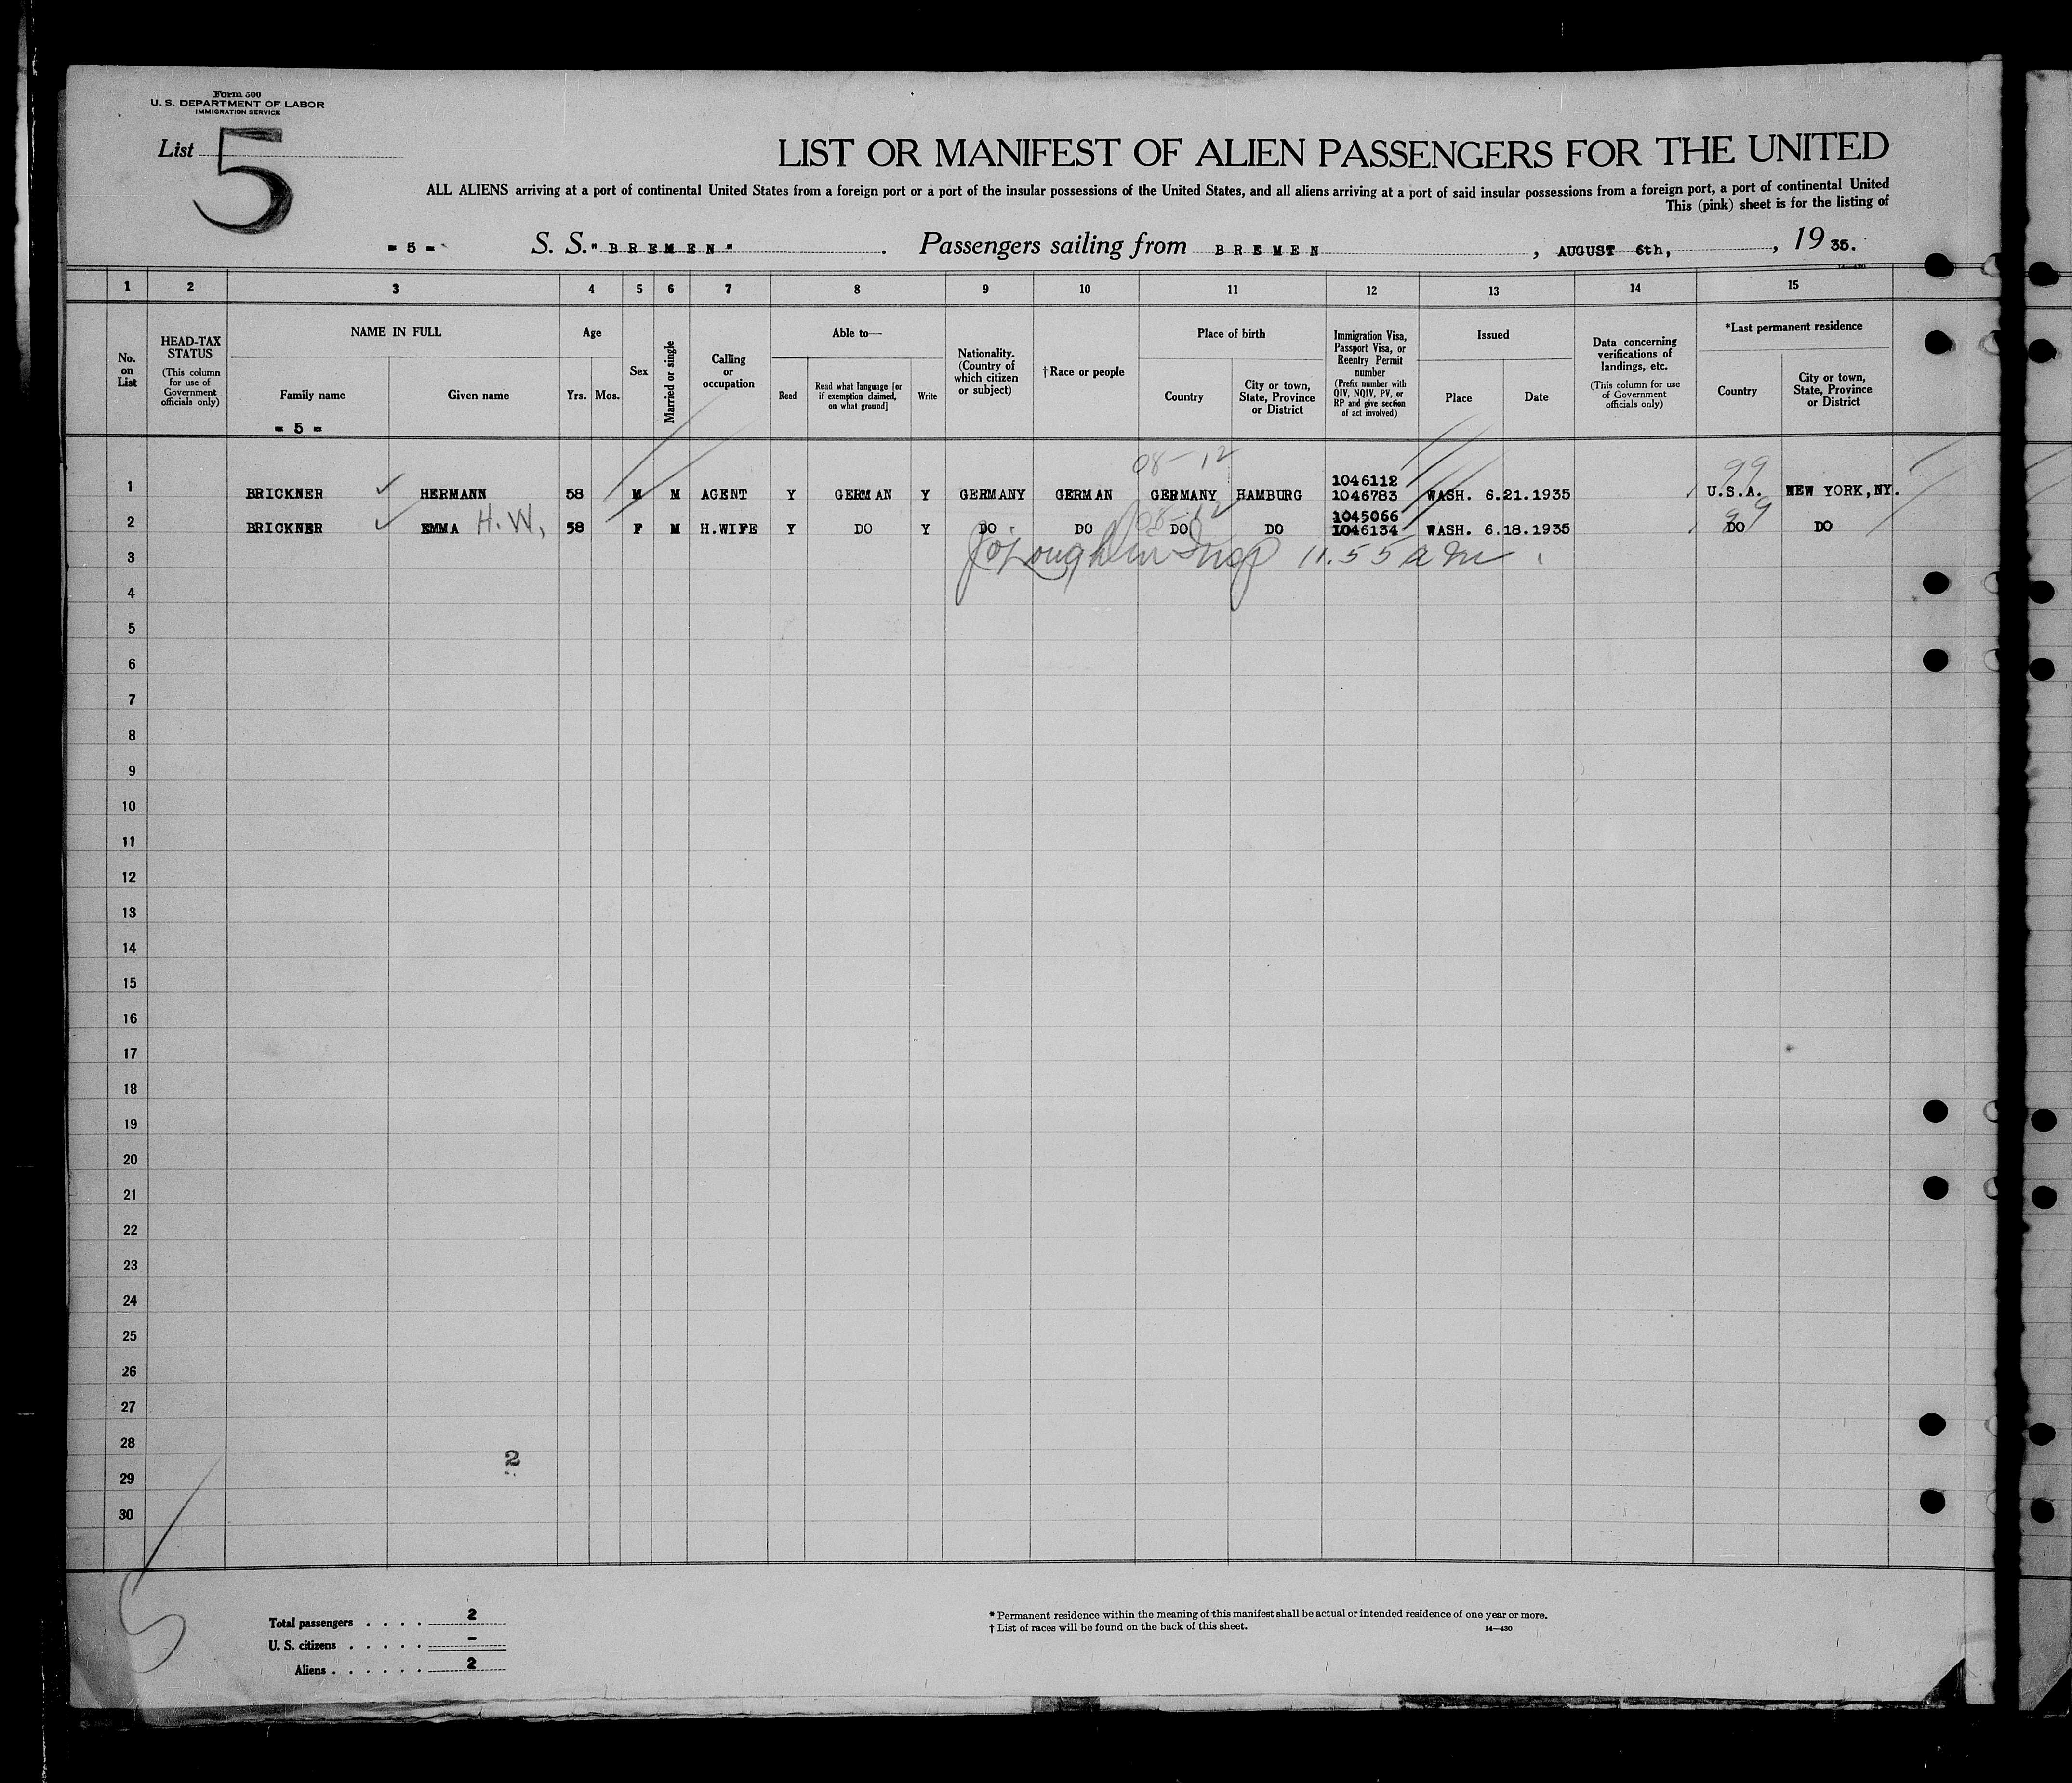 Form 500
U. S. DEPARTMENT OF LABOR
IMMIGRATION SERVICE
List 5
LIST OR MANIFEST OF ALIEN PASSENGERS FOR THE UNITED
ALL ALIENS arriving at a port of continental United States from a foreign port or a port of the insular possessions of the United States, and all aliens arriving at a port of said insular possessions from a foreign port, a port of continental United
This (pink) sheet is for the listing of
= 5 = S. S. "BREMEN". Passengers sailing from BREMEN, AUGUST 6th, , 19 35.
1 2 3 4 5 6 7 8 9 10 11 12 13 14 15
No. on List
HEAD-TAX STATUS (This column for use of Government officials only)
NAME IN FULL
Family name Given name
Age
Yrs. Mos.
Sex
Married or single
Calling or occupation
Able to—
Read
Read what language [or if exemption claimed, on what ground]
Write
Nationality. (Country of which citizen or subject)
† Race or people
Place of birth
Country
City or town, State, Province or District
Immigration Visa, Passport Visa, or Reentry Permit number (Prefix number with QIV, NQIV, PV, or RP and give section of act involved)
Issued
Place Date
Data concerning verifications of landings, etc. (This column for use of Government officials only)
*Last permanent residence
Country
City or town, State, Province or District
= 5 =
08-12
99
1046112
1 BRICKNER HERMANN 58 M M AGENT Y GERMAN Y GERMANY GERMAN GERMANY HAMBURG 1046783 WASH. 6.21.1935 U.S.A. NEW YORK,NY.
08-12
99
1045066
2 BRICKNER EMMA H.W. 58 F M H.WIFE Y DO Y DO DO DO DO 1046134 WASH. 6.18.1935 DO DO
3 Insp 11.55 am
4
5
6
7
8
9
10
11
12
13
14
15
16
17
18
19
20
21
22
23
24
25
26
27
28
2
29
30
5
Total passengers . . . . 2
U. S. citizens . . . . . -
Aliens . . . . . . 2
* Permanent residence within the meaning of this manifest shall be actual or intended residence of one year or more.
† List of races will be found on the back of this sheet. 14—430